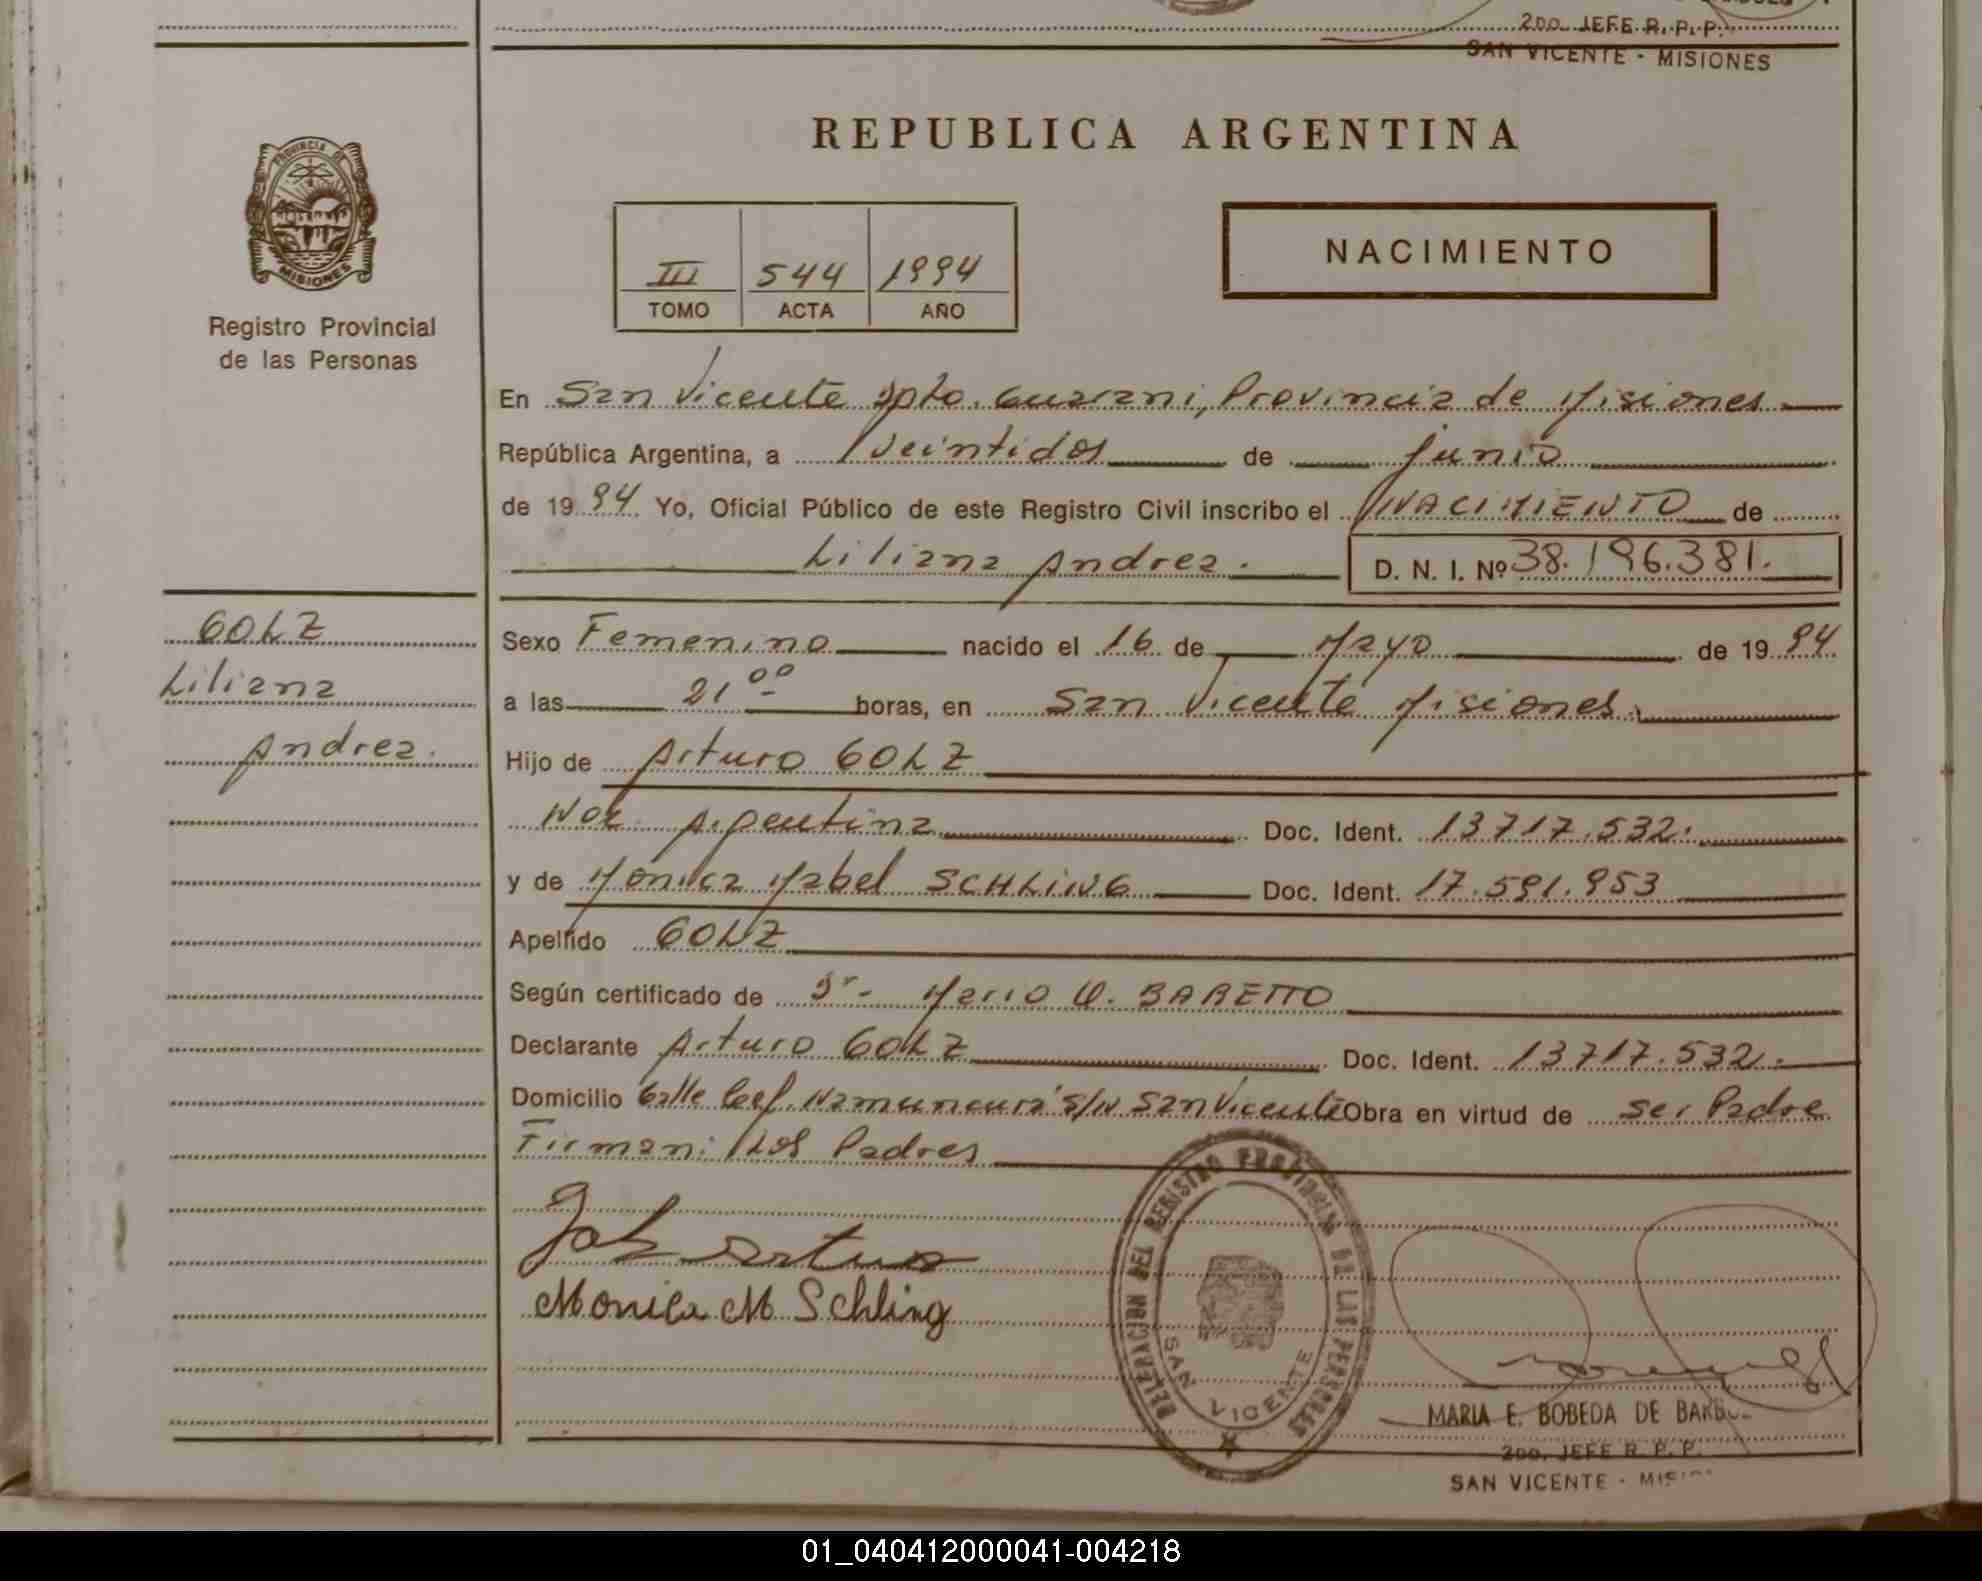 2DO. JEFE R. P. P.
SAN VICENTE - MISIONES
PROVINCIA DE
MISIONES
Registro Provincial
de las Personas
REPUBLICA ARGENTINA
III 544 1994
TOMO ACTA AÑO
NACIMIENTO
En San Vicente Dpto. Guarani, Provincia de Misiones
República Argentina, a veintidos de junio
de 1994 Yo, Oficial Público de este Registro Civil inscribo el NACIMIENTO de
Liliana Andrea. D. N. I. Nº 38.196.381.
GOLZ
Liliana
Andrea.
Sexo Femenino nacido el 16 de Mayo de 1994
a las 21 00 horas, en San Vicente Misiones.
Hijo de Arturo GOLZ
Argentina Doc. Ident. 13717.532.
y de Monica Mabel SCHLING Doc. Ident. 17.591.953
Apellido GOLZ
Según certificado de Dr- Mario O. BARETTO
Declarante Arturo GOLZ Doc. Ident. 13717.532.
Domicilio Calle Cef. Namuncurá S/N San Vicente Obra en virtud de ser Padre
Firman: Los Padres
Golz Arturo
Monica M Schling
DELEGACION DEL REGISTRO PROVINCIAL DE LAS PERSONAS
SAN VICENTE
MARIA E. BOBEDA DE
2DO. JEFE R. P. P.
SAN VICENTE -
01_040412000041-004218